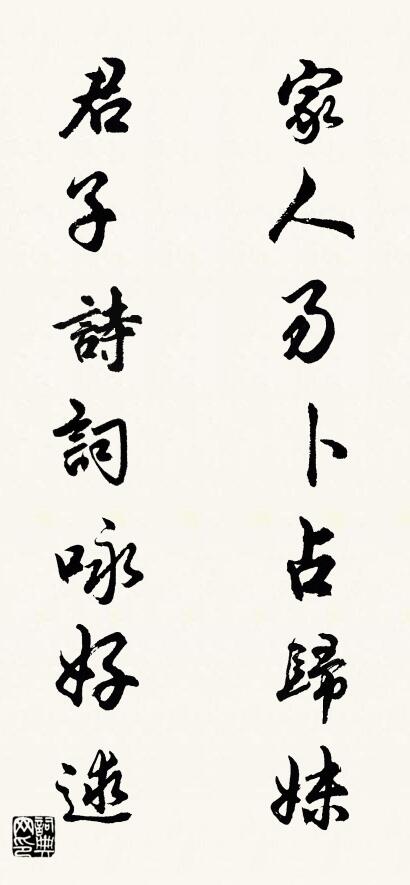 家人易卜占歸妹
君子詩詞咏好逑
詞典网印